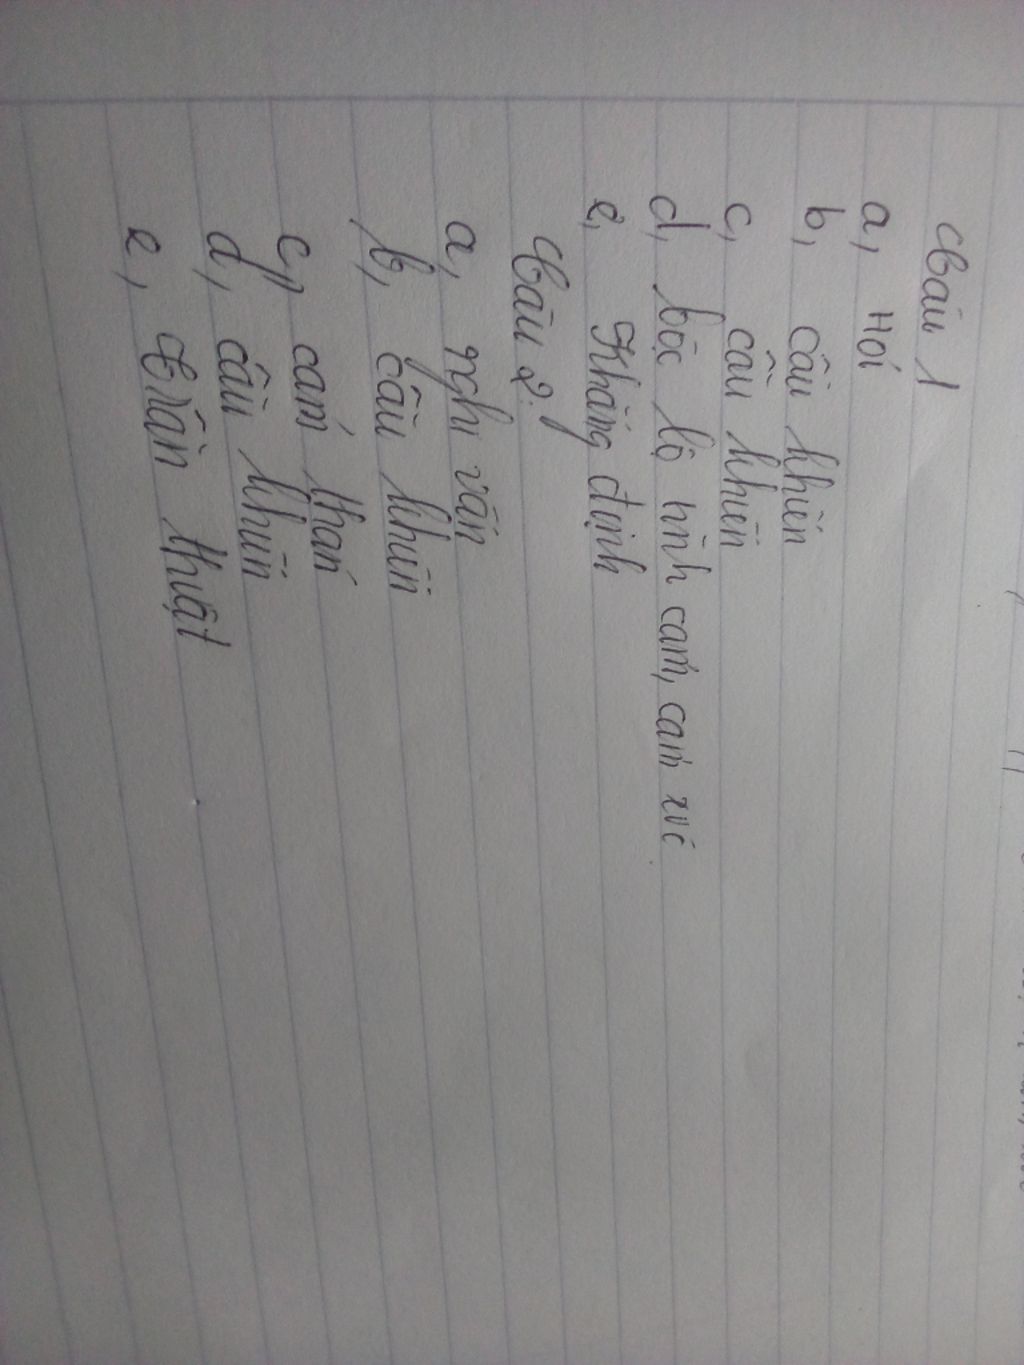 Câu 1
a, Hỏi
b, cầu khiến
c, cầu khiến
d, bộc lộ tình cảm, cảm xúc
e, Khẳng định
Câu 2.
a, nghi vấn
b, cầu khiến
c, cảm thán
d, cầu khiến
e, trần thuật